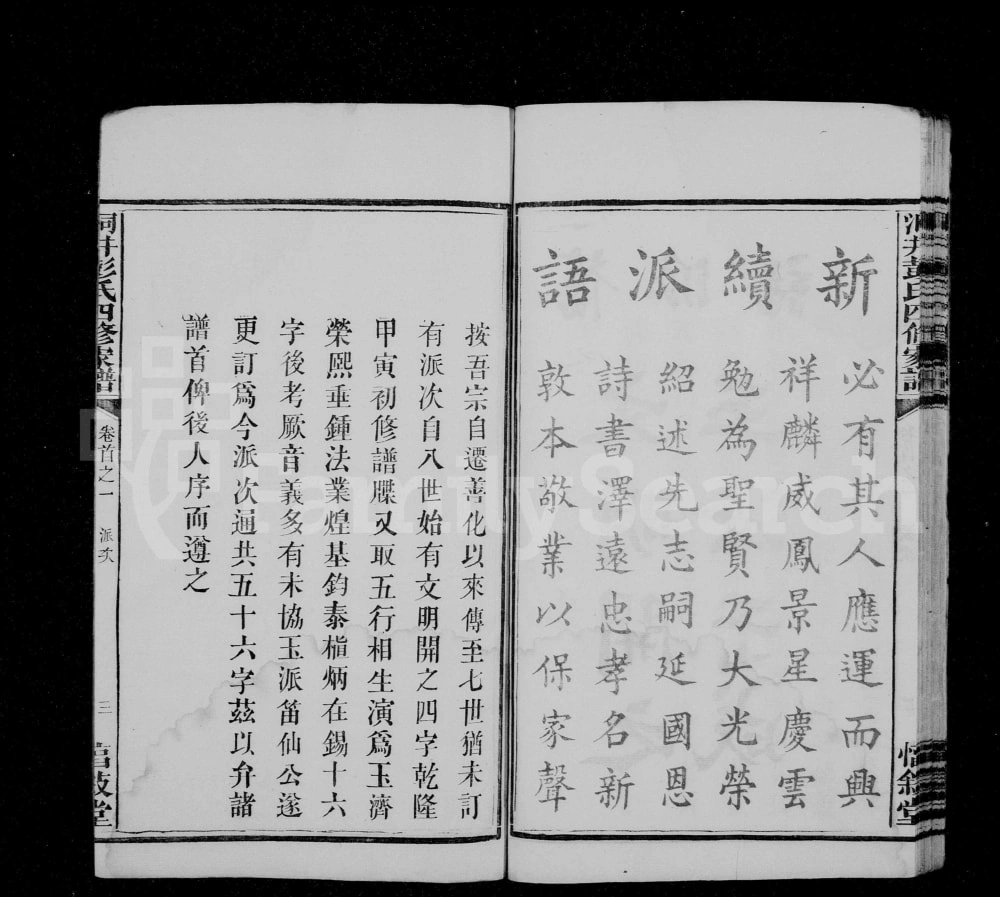 新續派語
必有其人應運而興
祥麟威鳳景星慶雲
勉為聖賢乃大光榮
紹述先志嗣延國恩
詩書澤遠忠孝名新
敦本敬業以保家聲
按吾宗自遷善化以來傳至七世猶未訂
有派次自八世始有文明開之四字乾隆
甲寅初修譜牒又取五行相生演爲玉濟
榮熙垂鍾法業煌基鈞泰植炳在錫十六
字後考厥音義多有未協玉派笛仙公遂
更訂爲今派次通共五十六字茲以弁諸
譜首俾後人序而遵之
洞井彭氏四修家譜
卷首之一
派次
三
FamilySearch